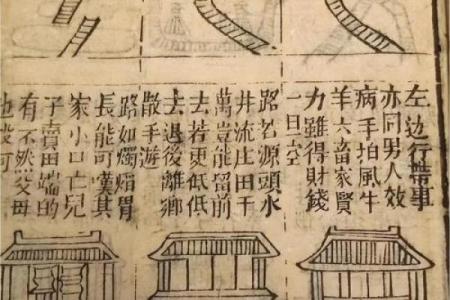 左边行帶事
亦同男人效
病手拍風牛
羊六畜家賢
力雖得財錢
一旦空
路若源頭水
井流庄田千
萬豈能留前
去若更低低
去退後離鄉
散手游
路如燭熖冑
長能可嘆其
家小口亡兒
子賣田端的
有不然父母
也投河